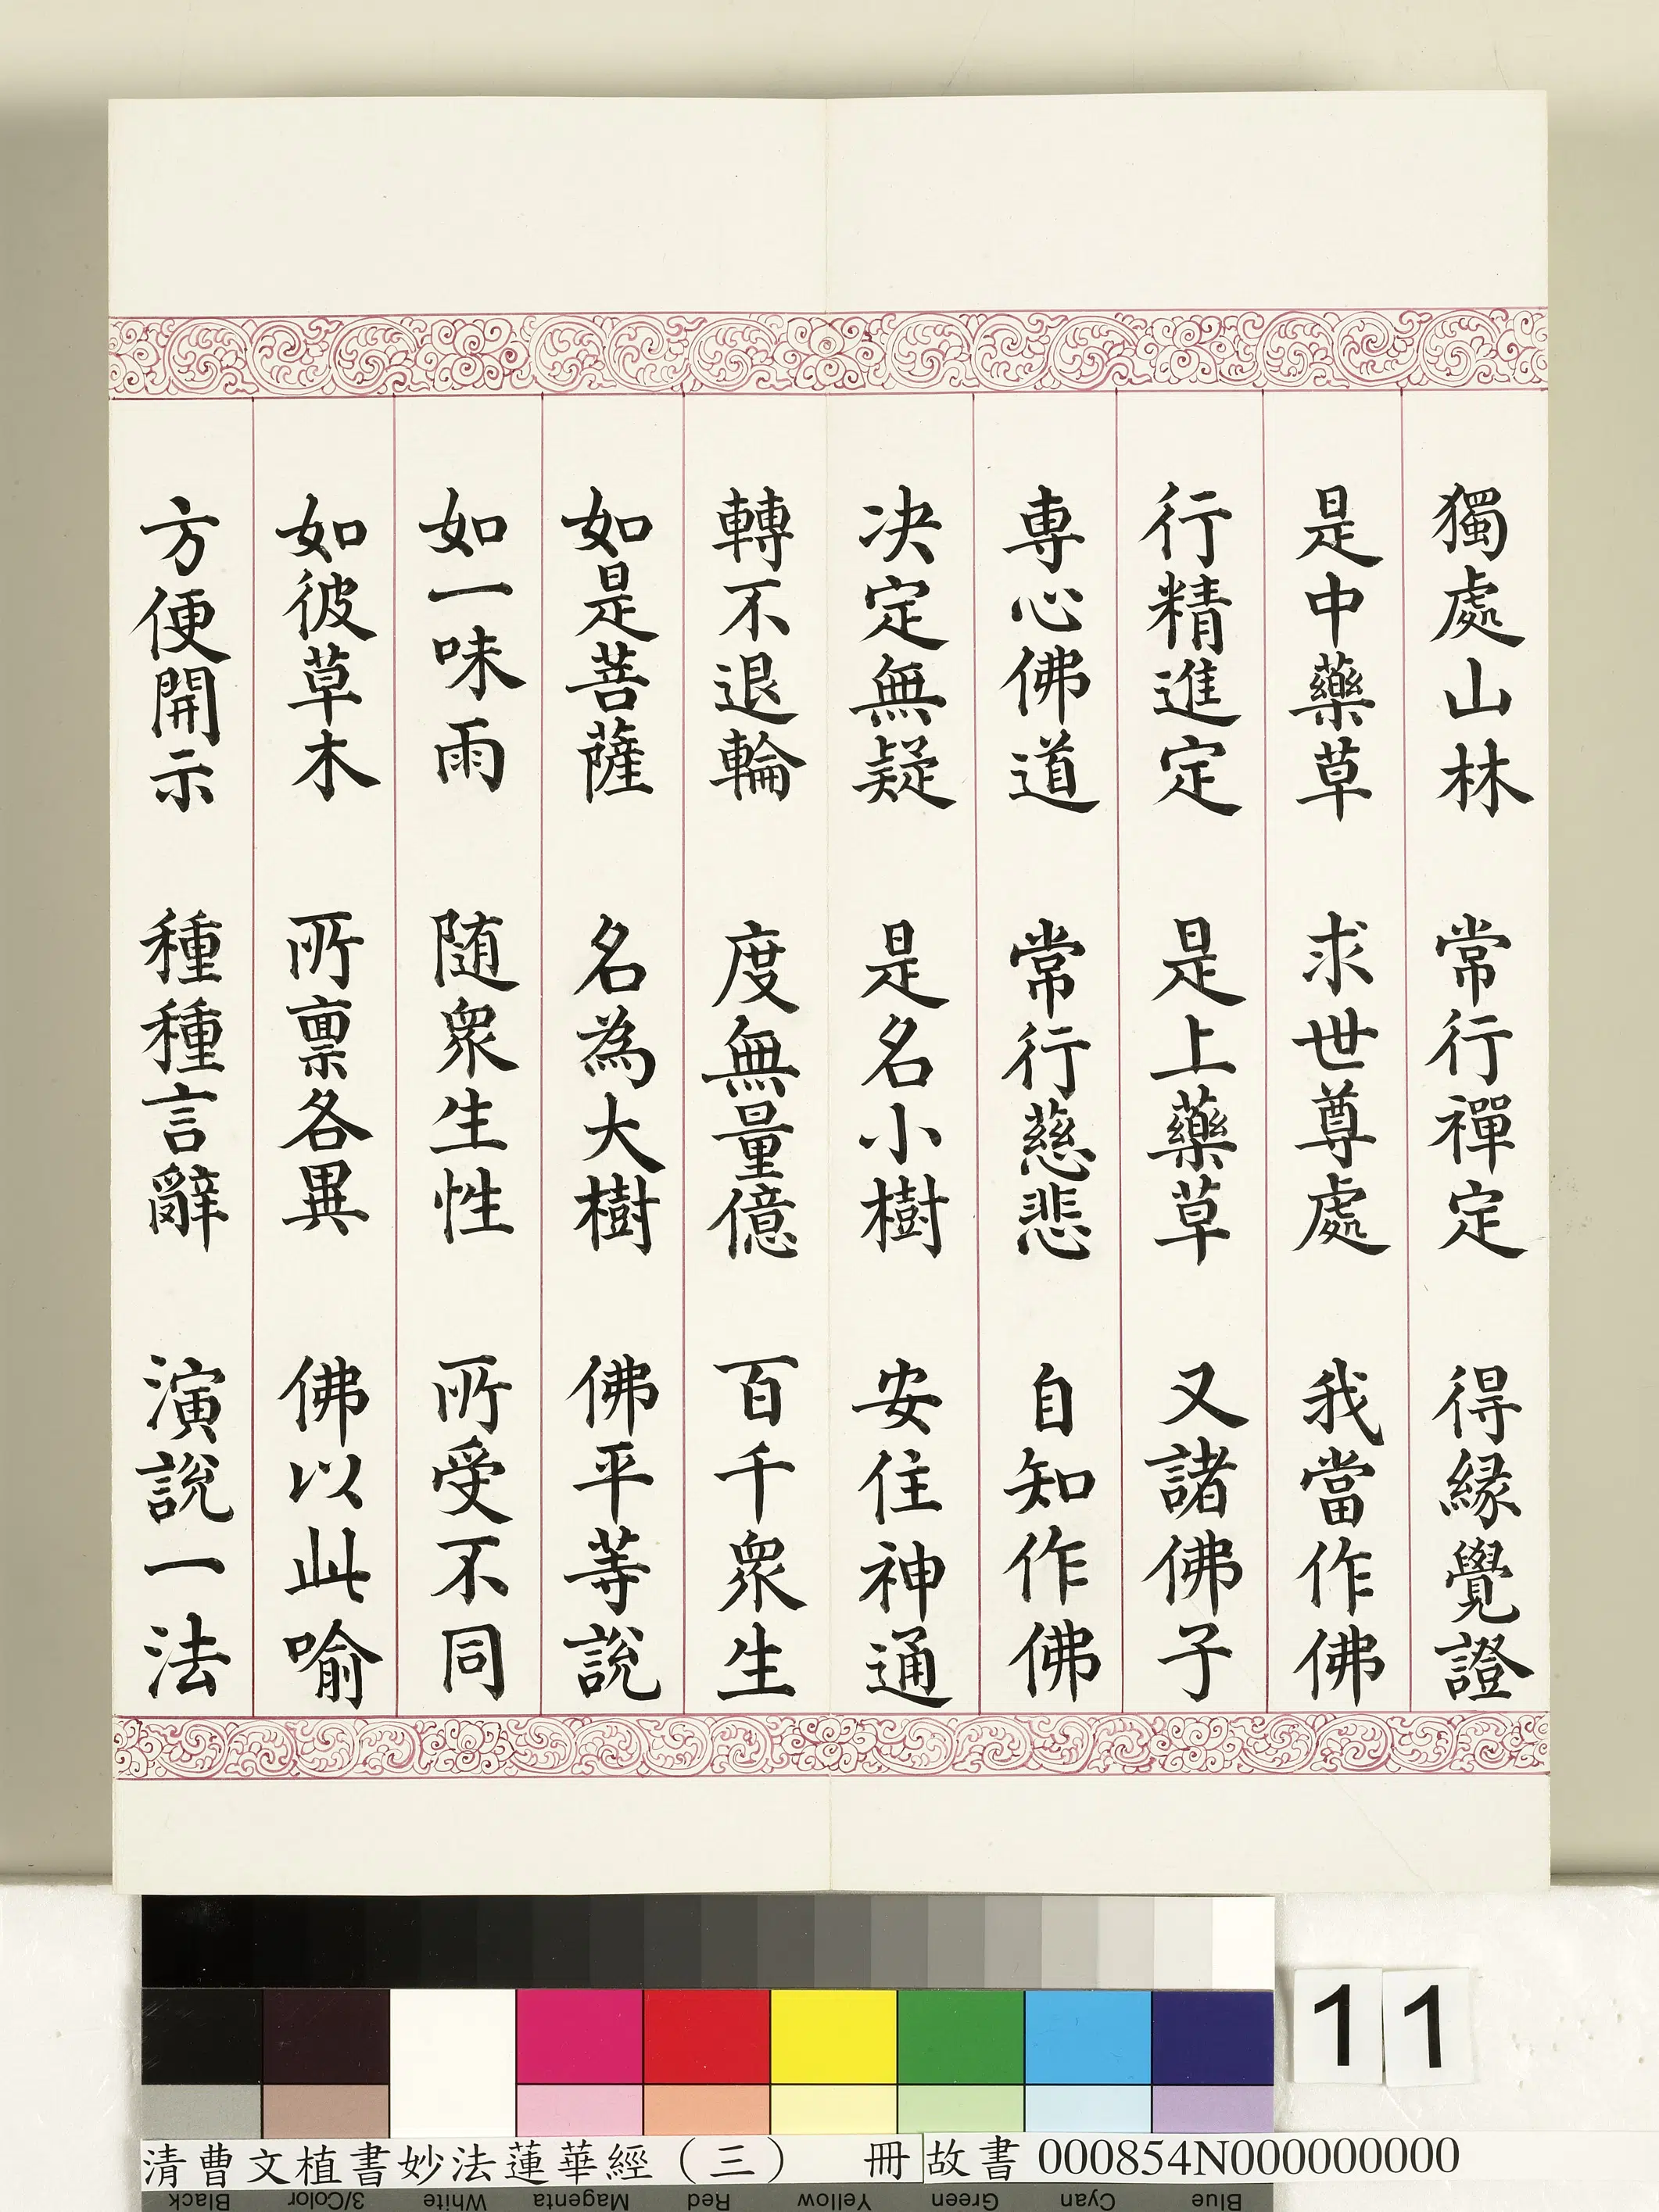 獨處山林　常行禪定　得緣覺證
是中藥草　求世尊處　我當作佛
行精進定　是上藥草　又諸佛子
專心佛道　常行慈悲　自知作佛
决定無疑　是名小樹　安住神通
轉不退輪　度無量億　百千衆生
如是菩薩　名為大樹　佛平等說
如一味雨　随衆生性　所受不同
如彼草木　所禀各異　佛以此喻
方便開示　種種言辭　演說一法
11
清曹文植書妙法蓮華經（三）　冊 故書 000854N000000000
Black 3/Color White Magenta Red Yellow Green Cyan Blue